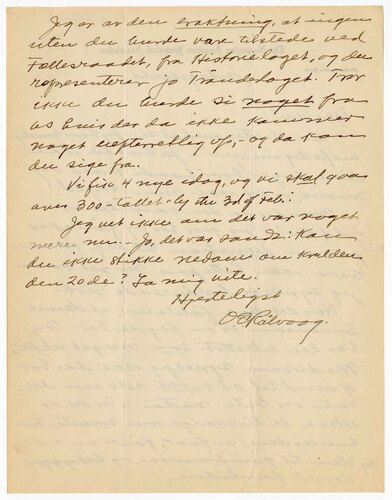 Jeg er av den eraktning, at ingen
uten du burde vare tilstede ved
Fællesraadet, fra Historielaget, og du
representerer jo Trønderlaget. Tror
ikke du burde si noget fra
os hvis der da ikke kommer
noget op, – og da kan
du sige fra.
Vi fik 4 nye idag, og vi skal go
over 300-tallet by the 3d of Feb.
Jeg vet ikke om det var noget
mere nu. – Jo, det var sandt: Kan
du ikke stikke nedom om kvelden
den 20de? La mig vite.
Hjerteligst
O E Rølvaag.